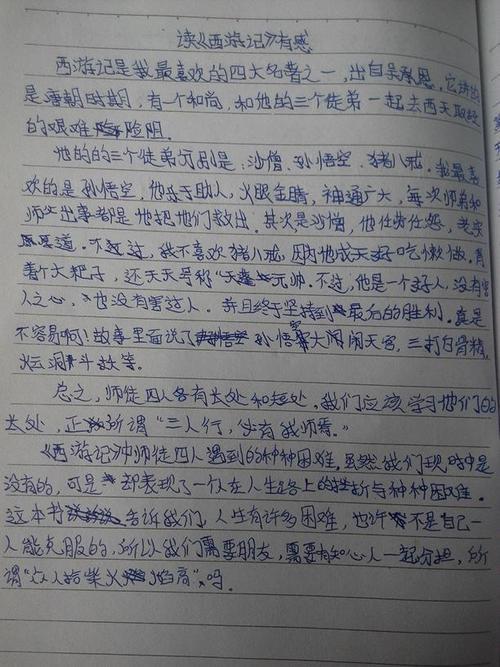 读《西游记》有感
西游记是我最喜欢的四大名著之一，出自吴承恩，它讲的
是唐朝时期，有一个和尚，和他的三个徒弟一起去西天取经
的艰难险阻。
他的的三个徒弟分别是：沙僧、孙悟空、猪八戒。我最喜
欢的是孙悟空，他乐于助人，火眼金睛，神通广大，每次师弟和
师父出事都是他把他们救出。其次是沙僧，他任劳任怨，老实
厚道。不过，我不喜欢猪八戒，因为他成天好吃懒做。
着个大耙子，还天天号称“天蓬元帅。不过，他是一个好人，没有害
人之心，也没有害过人。并且终于坚持到最后的胜利。真是
不容易啊！故事里面说了孙悟空大闹闹天宫，三打白骨精，
火云洞斗 等。
总之，师徒四人各有长处和短处，我们应该学习他们的
长处，正所谓“三人行，必有我师焉。”
《西游记》中师徒四人遇到的种种困难，虽然我们现时中是
没有的，可是却表现了一个人在人生路上的挫折与种种困难。
这本书告诉我们，人生有许多困难，也许不是自己一
人能克服的，所以我们需要朋友，需要有知心人一起分担，所
谓“众人拾柴火焰高”，吗。